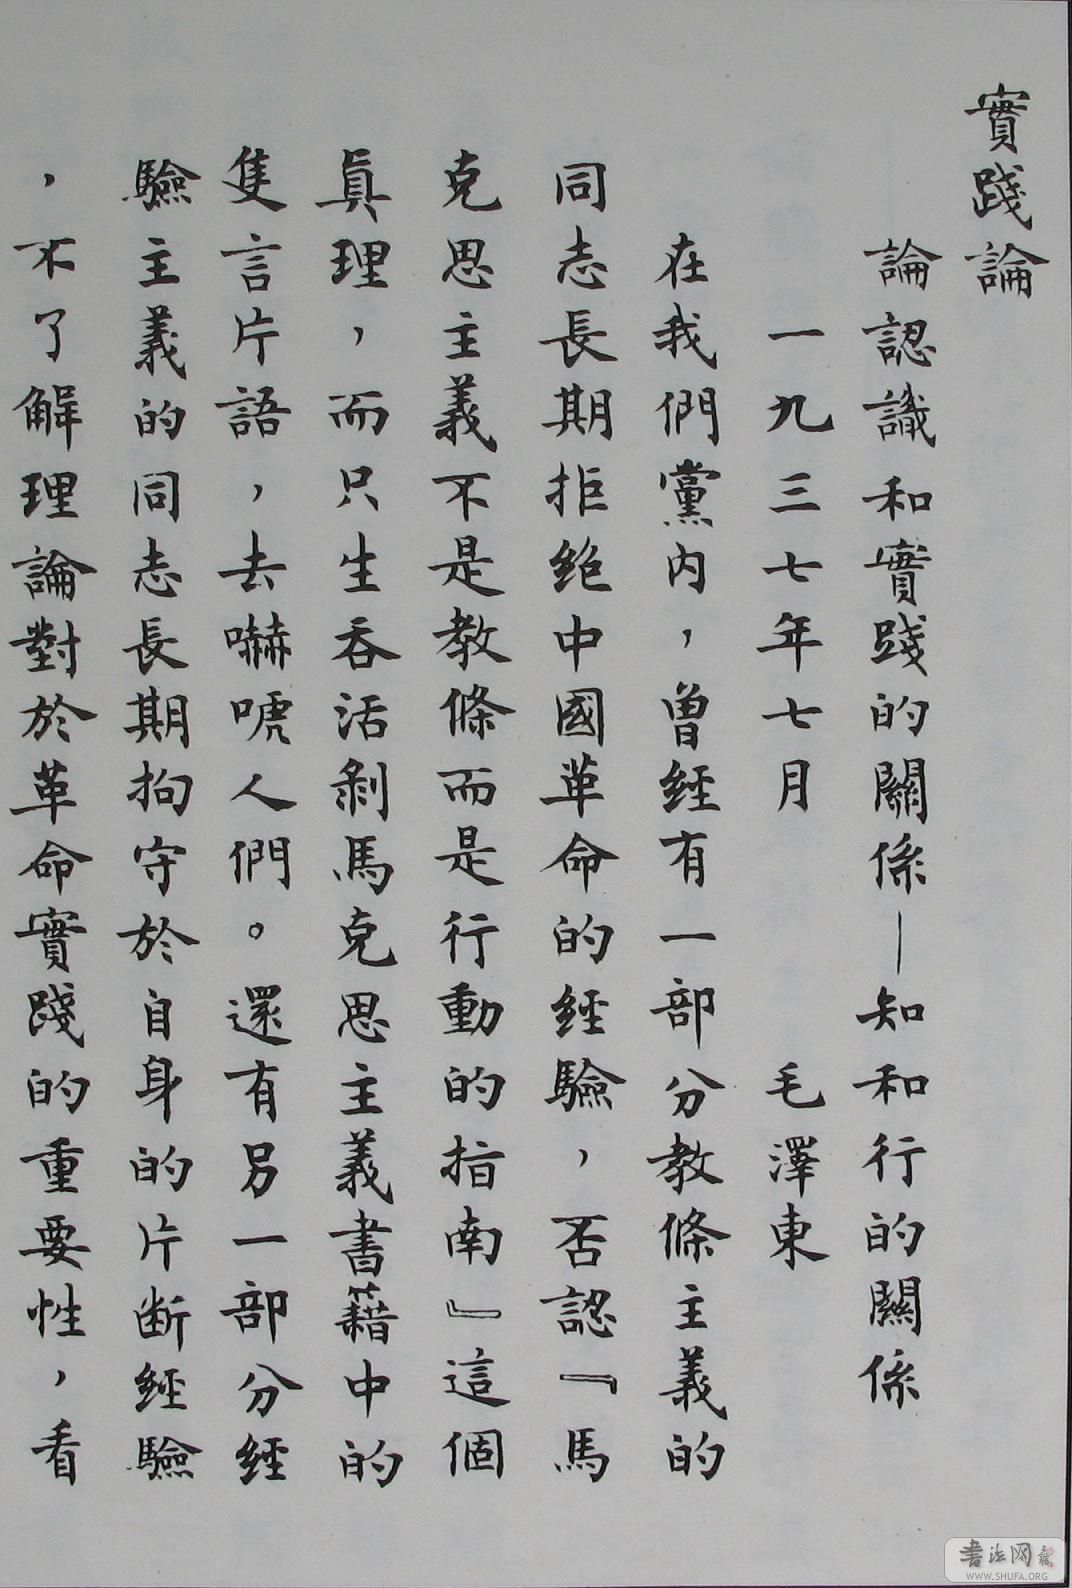 實踐論
論認識和實踐的關係—知和行的關係
一九三七年七月　毛澤東
在我們黨内，曾經有一部分教條主義的
同志長期拒絶中國革命的經驗，否認『馬
克思主義不是教條而是行動的指南』這個
眞理，而只生吞活剥馬克思主義書籍中的
隻言片語，去嚇唬人們。還有另一部分經
驗主義的同志長期拘守於自身的片断經驗
，不了解理論對於革命實踐的重要性，看
書法网
WWW.SHUFA.ORG